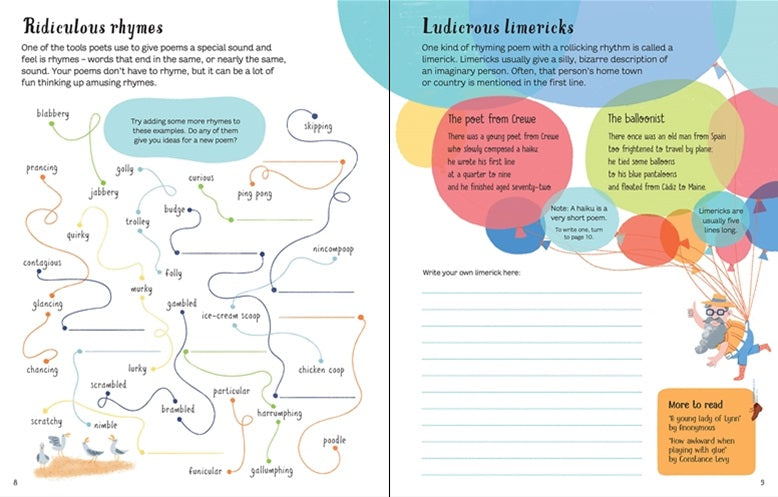 Ridiculous rhymes
One of the tools poets use to give poems a special sound and
feel is rhymes – words that end in the same, or nearly the same,
sound. Your poems don't have to rhyme, but it can be a lot of
fun thinking up amusing rhymes.
Try adding some more rhymes to
these examples. Do any of them
give you ideas for a new poem?
blabbery
skipping
prancing
golly
jabbery
curious
ping pong
budge
trolley
quirky
nincompoop
contagious
folly
murky
glancing
gambled
ice-cream scoop
chancing
lurky
chicken coop
scrambled
particular
scratchy
brambled
harrumphing
nimble
poodle
funicular
gallumphing
8
Ludicrous limericks
One kind of rhyming poem with a rollicking rhythm is called a
limerick. Limericks usually give a silly, bizarre description of
an imaginary person. Often, that person's home town
or country is mentioned in the first line.
The poet from Crewe
There was a young poet from Crewe
who slowly composed a haiku:
he wrote his first line
at a quarter to nine
and he finished aged seventy-two.
The balloonist
There once was an old man from Spain
too frightened to travel by plane:
he tied some balloons
to his blue pantaloons
and floated from Cádiz to Maine.
Note: A haiku is a
very short poem.
To write one, turn
to page 10.
Limericks are
usually five
lines long.
Write your own limerick here:
More to read
"A young lady of Lynn"
by Anonymous
"How awkward when
playing with glue"
by Constance Levy
9